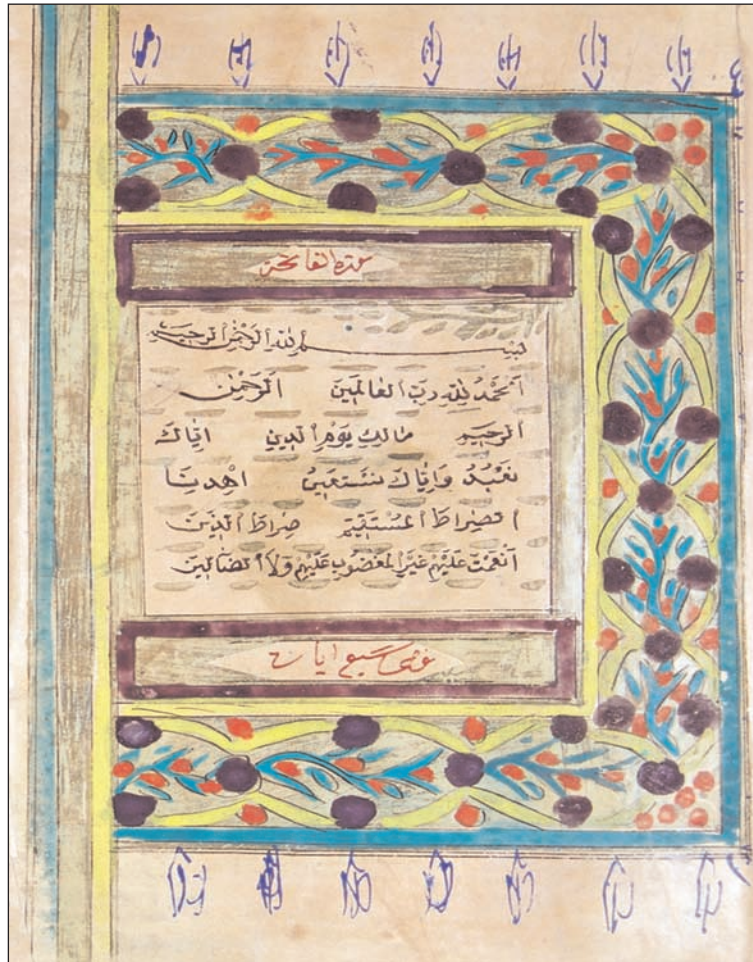 سورة الفاتحة
بسم الله الرحمن الرحيم
اَلحَمْدُ لِلّٰهِ رَبِّ الْعَالَمِينَ الرَّحْمٰنِ
الرَّحِيمِ مَالِكِ يَوْمِ الدِّينِ اِيَّاكَ
نَعْبُدُ وَاِيَّاكَ نَسْتَعِينُ اهْدِنَا
الصِّرَاطَ الْمُسْتَقِيمَ صِرَاطَ الَّذِينَ
اَنْعَمْتَ عَلَيْهِمْ غَيْرِ الْمَغْضُوبِ عَلَيْهِمْ وَلَا الضَّالِّينَ
سبع ايات